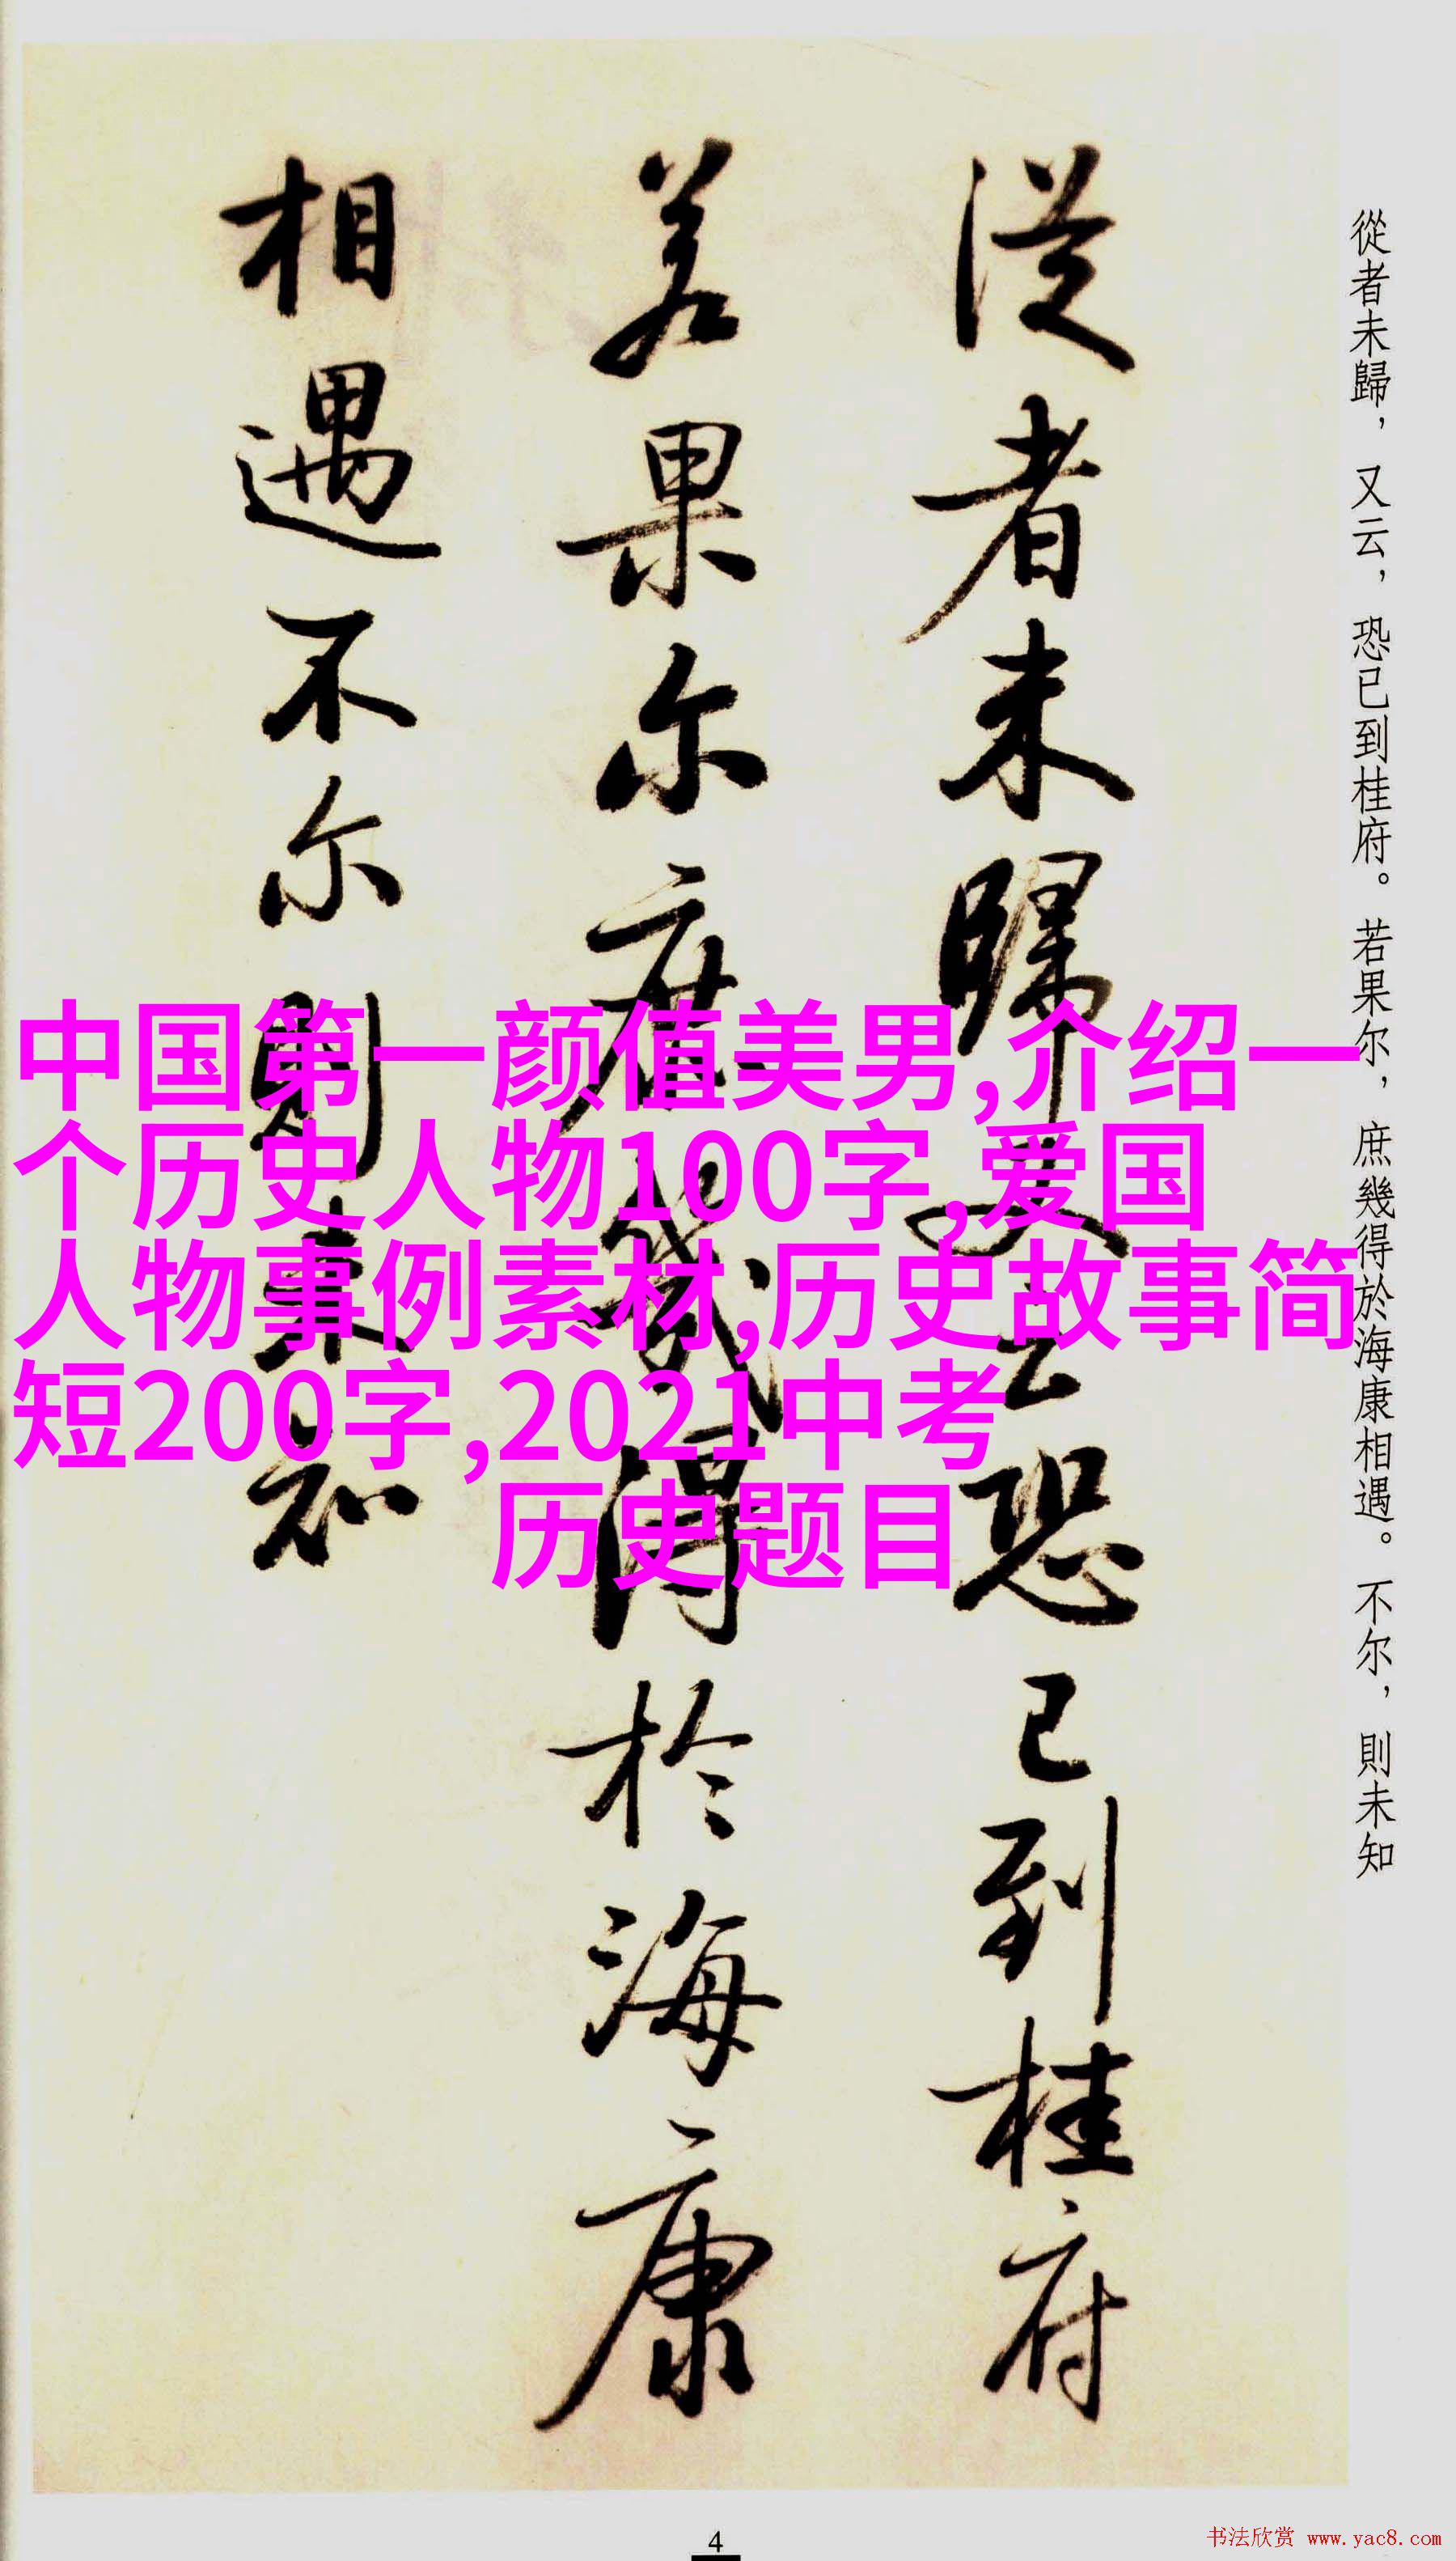 從者未歸，又云，恐已到桂府。若果尔，庶幾得於海康相遇。不尔，則未知
从者未歸又云恐已到桂府
若果尔庶幾得於海康
相遇不尔則未知
中国第一颜值美男,介绍一
个历史人物100字,爱国
人物事例素材,历史故事简
短200字,2021中考
历史题目
4
书法欣赏 www.yac8.com